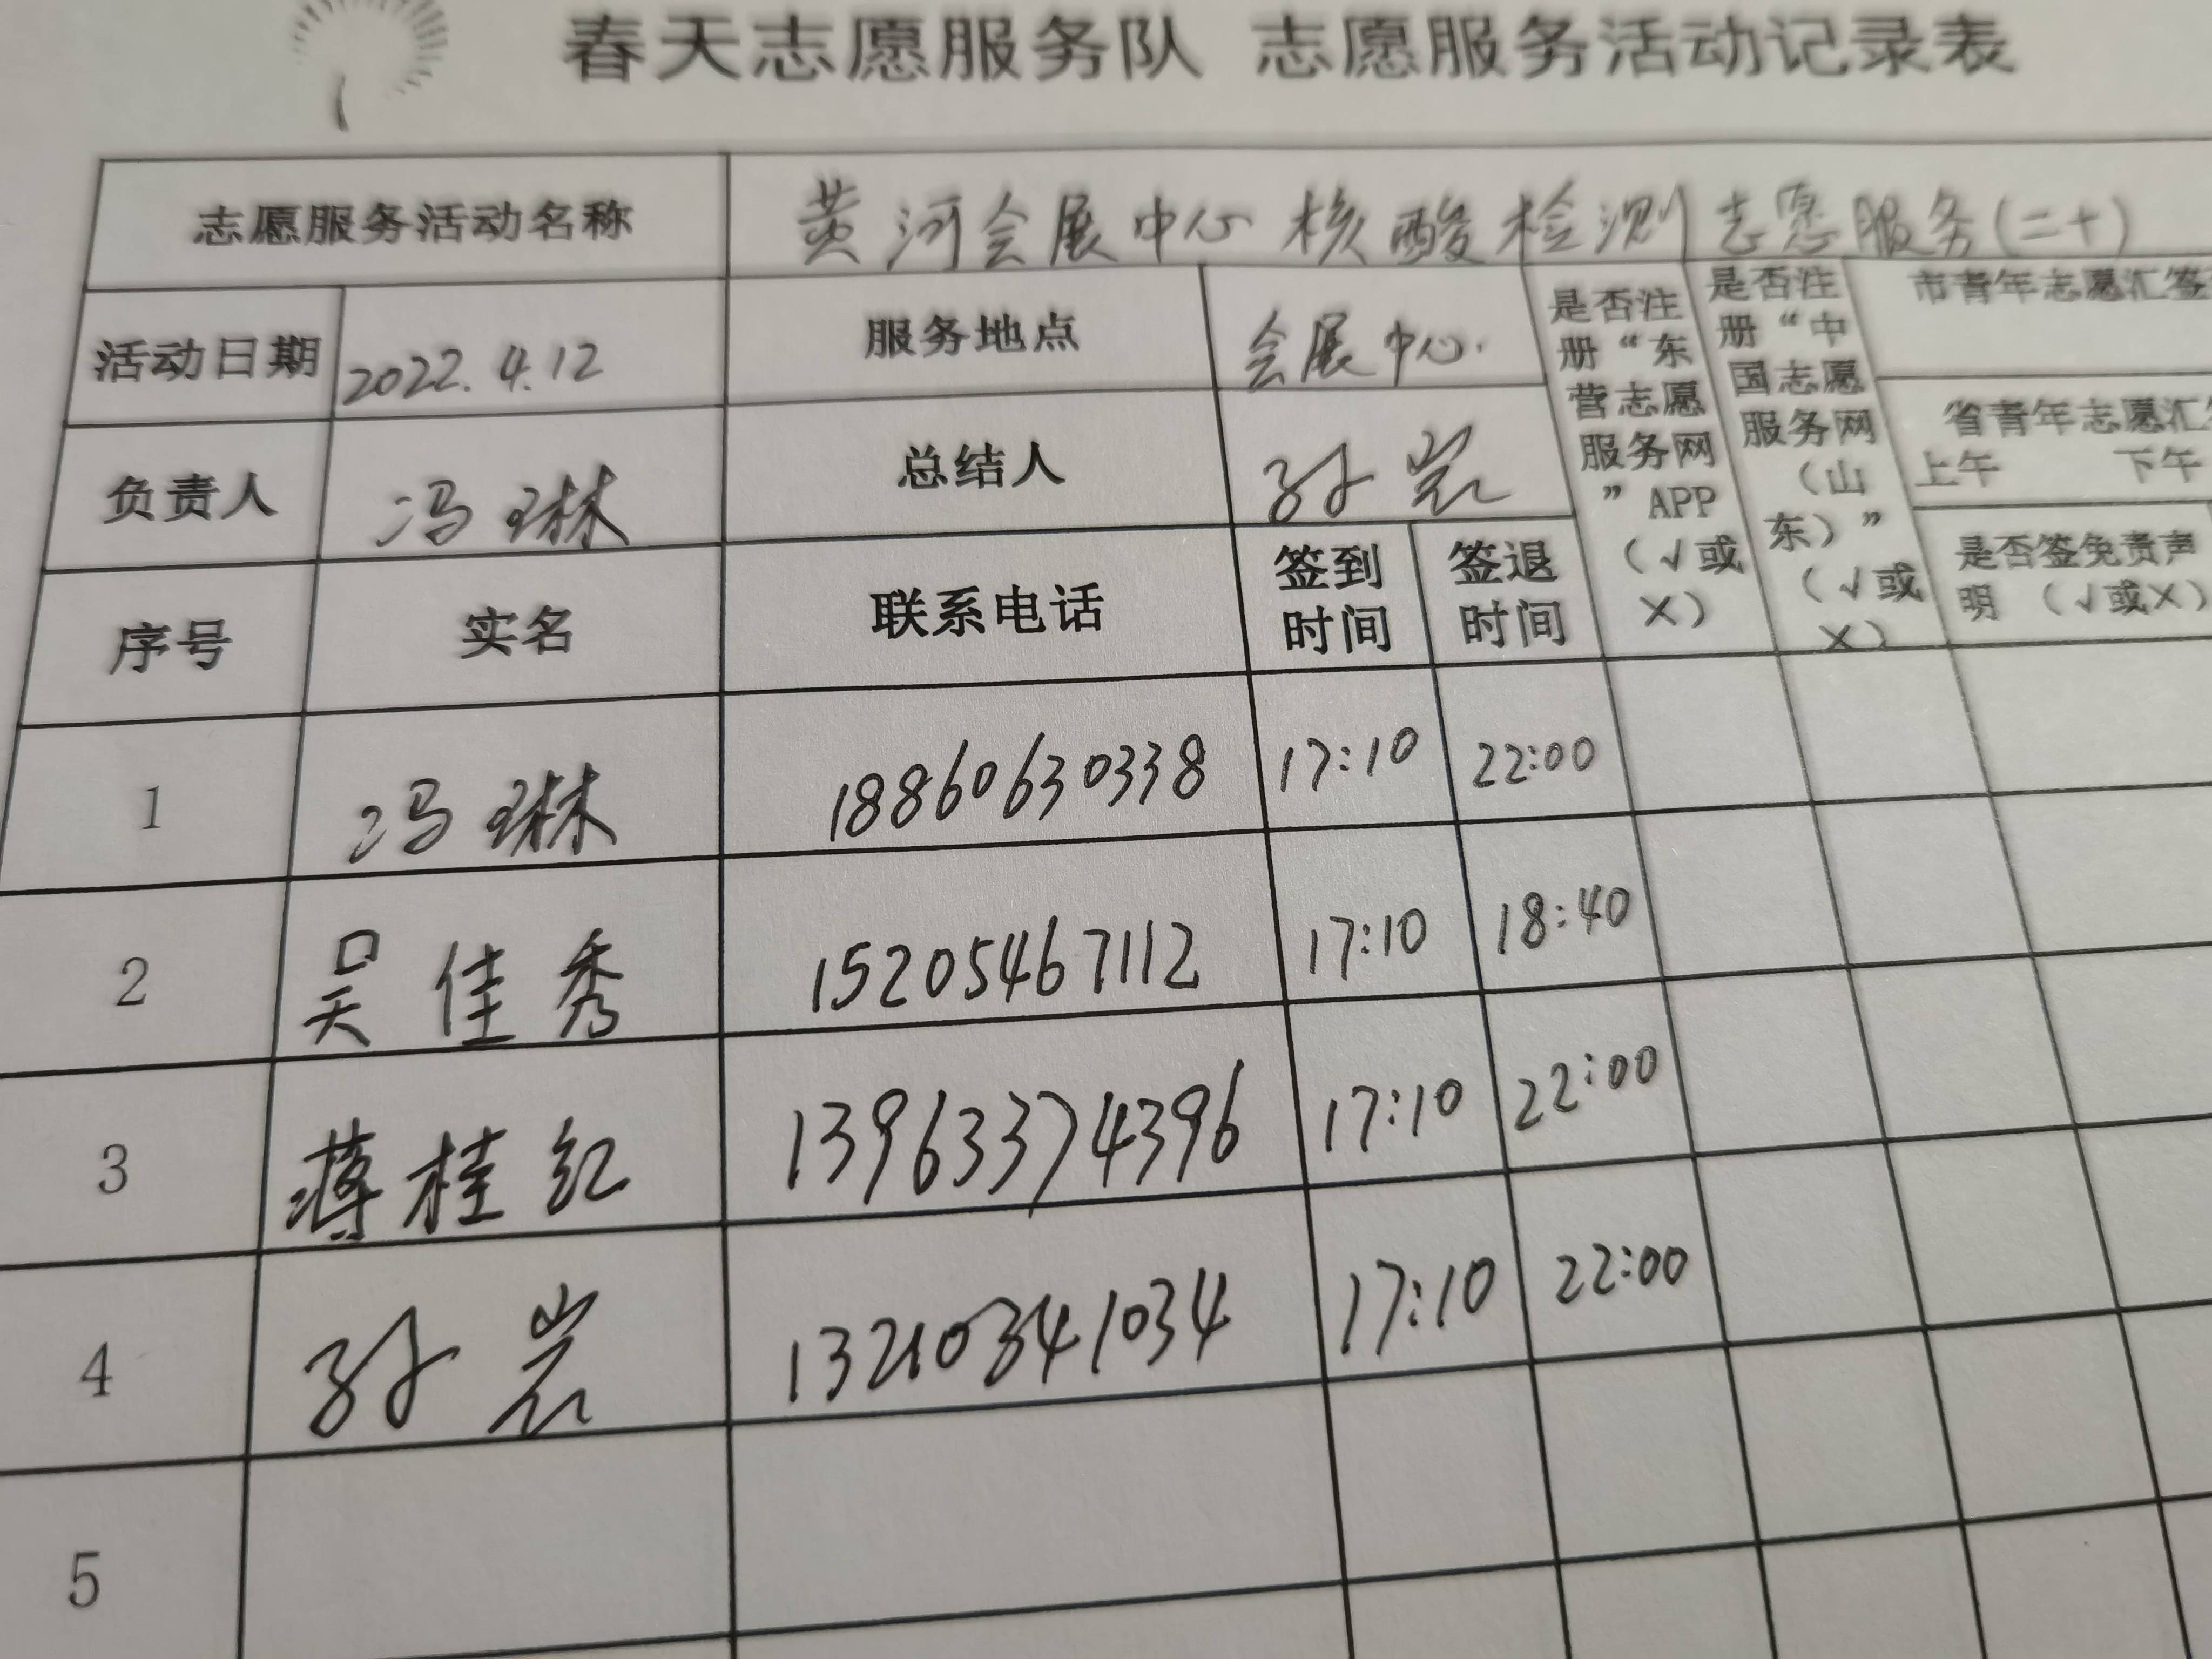 春天志愿服务队 志愿服务活动记录表
志愿服务活动名称 黄河会展中心核酸检测志愿服务(二十)
活动日期 2022.4.12 服务地点 会展中心.
负责人 冯琳 总结人 孙岩
是否注册“东营志愿服务网”APP(√或×)
是否注册“中国志愿服务网(山东)”(√或×)
市青年志愿汇签
省青年志愿汇签
上午 下午
是否签免责声明 (√或×)
序号 实名 联系电话 签到时间 签退时间
1 冯琳 18860630338 17:10 22:00
2 吴佳秀 15205467112 17:10 18:40
3 蒋桂红 13963374396 17:10 22:00
4 孙岩 13210341034 17:10 22:00
5